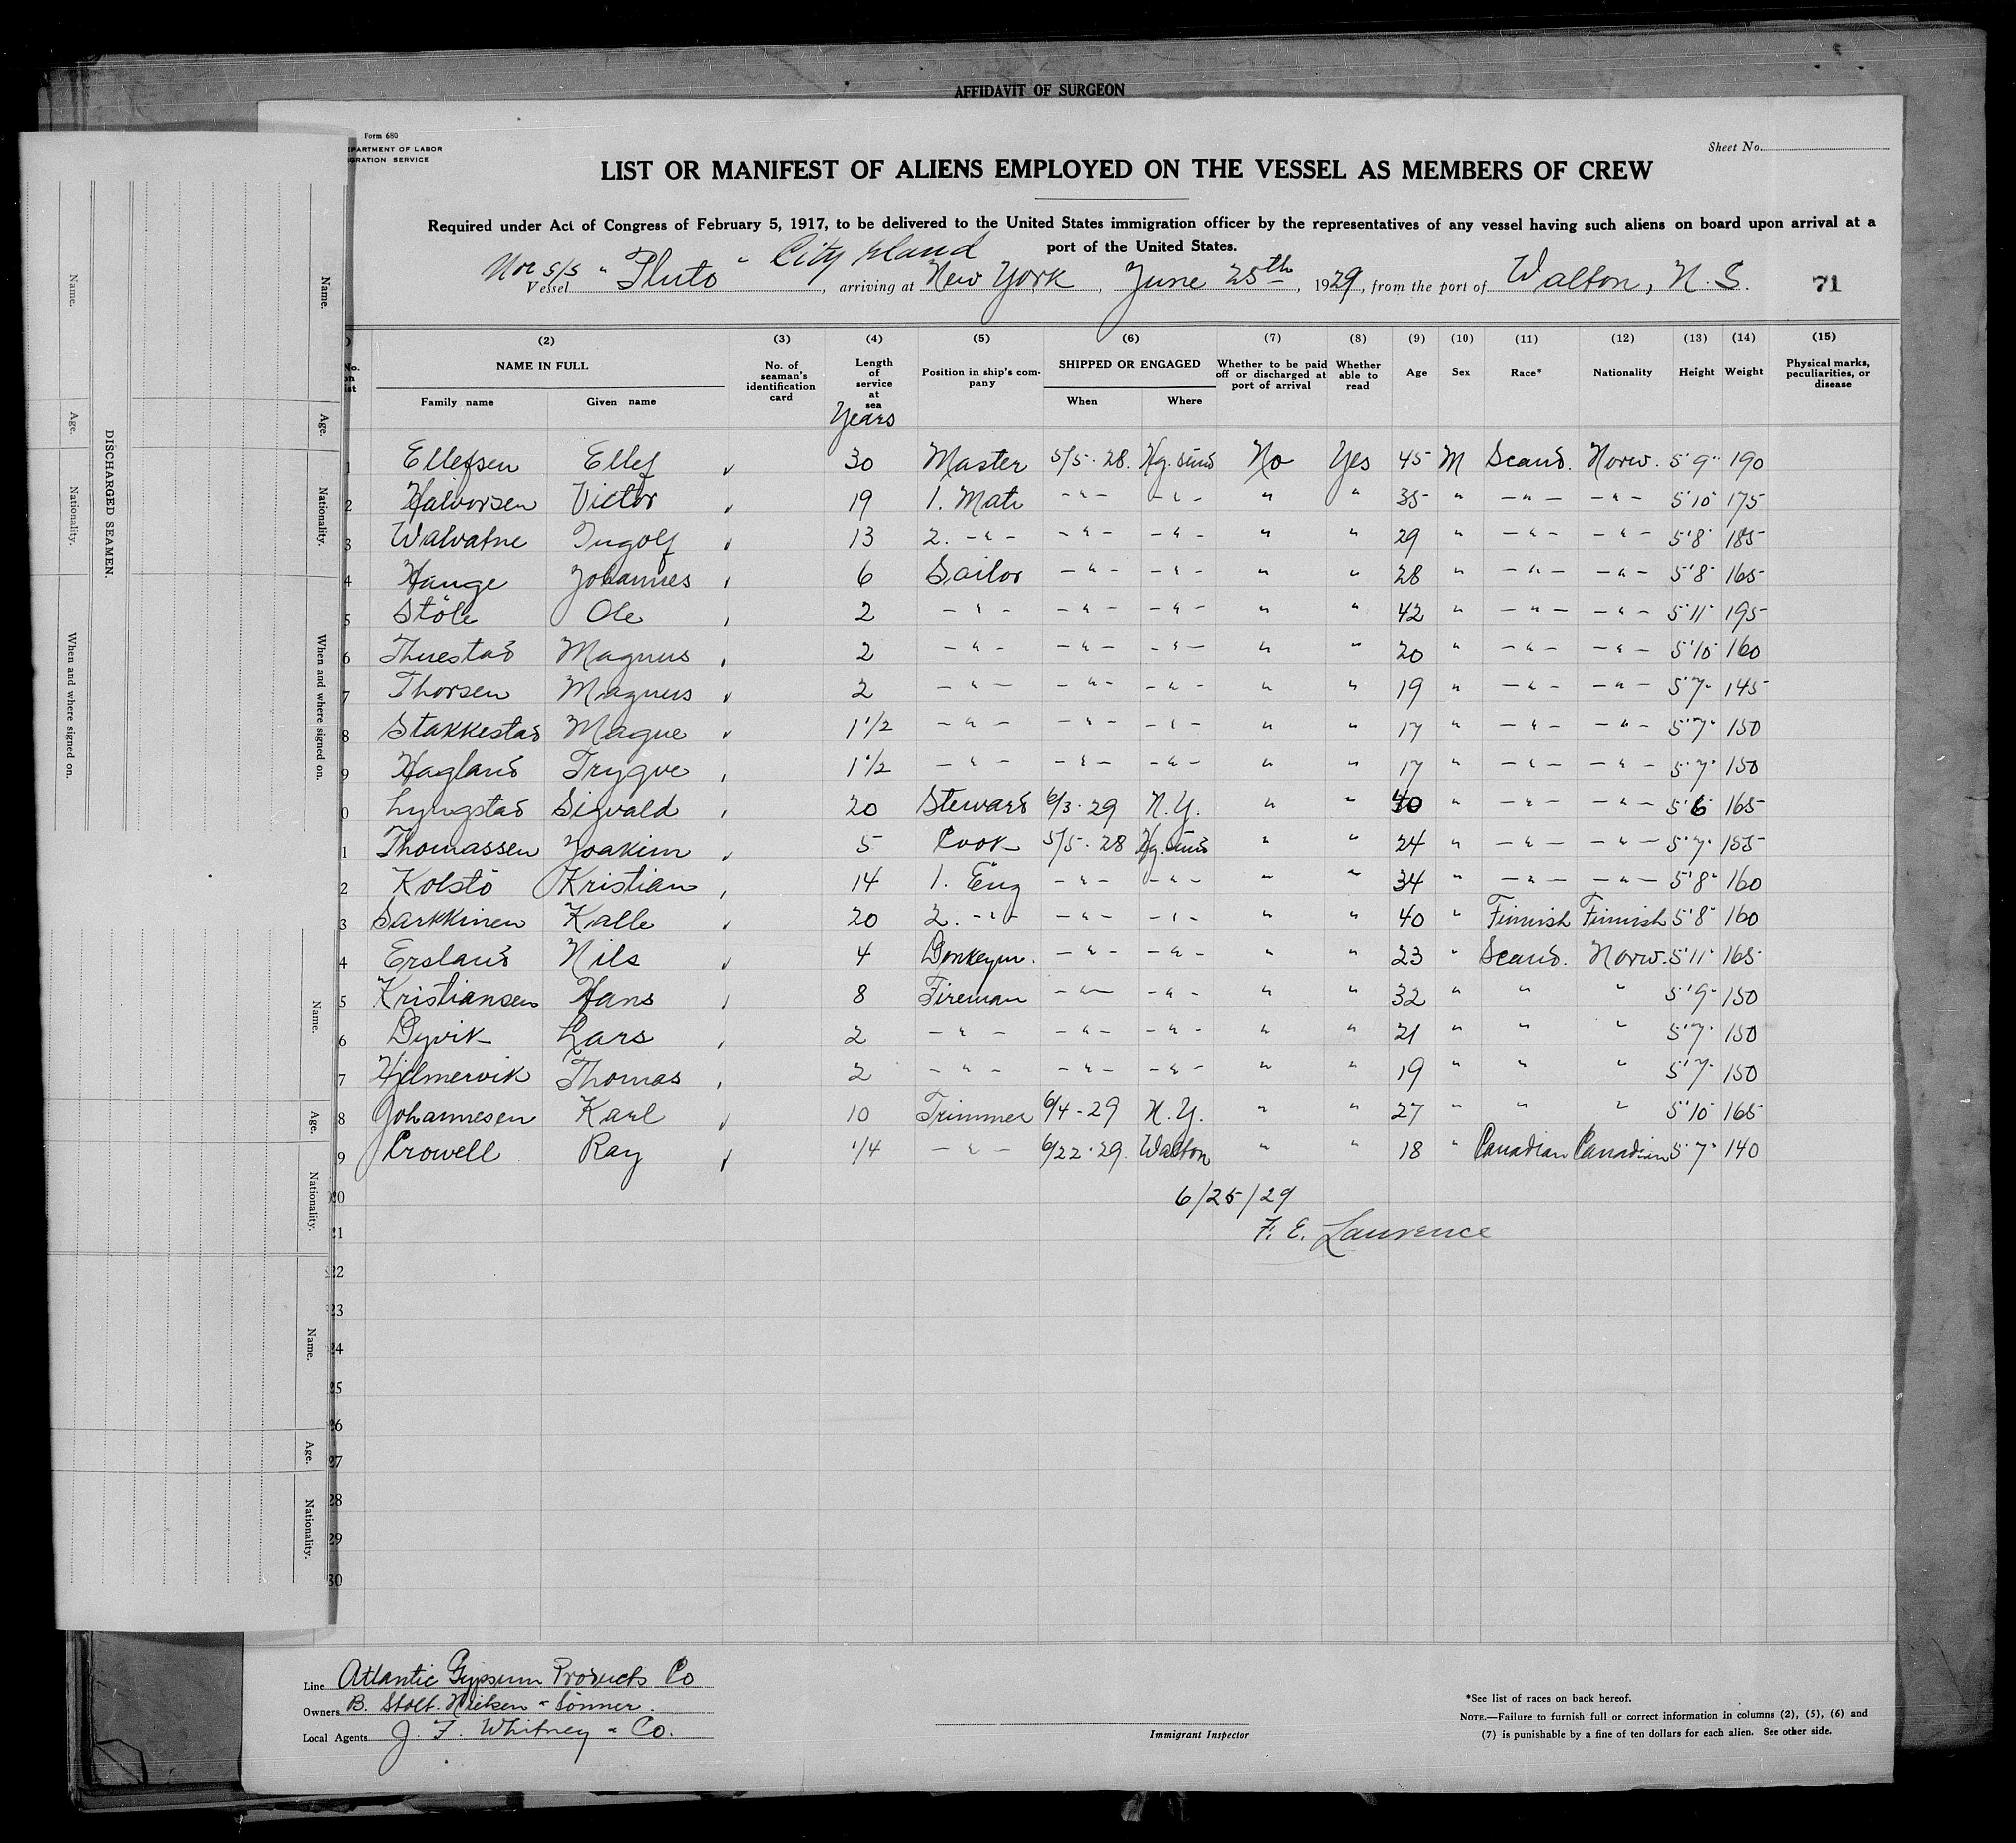 AFFIDAVIT OF SURGEON
Form 680
EPARTMENT OF LABOR
GRATION SERVICE
Sheet No.
LIST OR MANIFEST OF ALIENS EMPLOYED ON THE VESSEL AS MEMBERS OF CREW
Required under Act of Congress of February 5, 1917, to be delivered to the United States immigration officer by the representatives of any vessel having such aliens on board upon arrival at a
port of the United States.
City Island
Nor. S/S "Pluto"
Vessel , arriving at New York, June 25th, 1929, from the port of Walton, N.S. 71
(2) (3) (4) (5) (6) (7) (8) (9) (10) (11) (12) (13) (14) (15)
No. on list NAME IN FULL No. of seaman's identification card Length of service at sea Position in ship's company SHIPPED OR ENGAGED Whether to be paid off or discharged at port of arrival Whether able to read Age Sex Race* Nationality Height Weight Physical marks, peculiarities, or disease
Family name Given name When Where
Years
1 Ellefsen Ellef 30 Master 5/5-28. Hg.sund No Yes 45 M Scand. Norw. 5'9" 190
2 Halvorsen Victor 19 1. Mate -"- -"- " " 35 " -"- -"- 5'10" 175
3 Walvatne Ingolf 13 2. -"- -"- -"- " " 29 " -"- -"- 5'8" 185
4 Hauge Johannes 6 Sailor -"- -"- " " 28 " -"- -"- 5'8" 165
5 Stöle Ole 2 -"- -"- -"- " " 42 " -"- -"- 5'11" 195
6 Thuestad Magnus 2 -"- -"- -"- " " 20 " -"- -"- 5'10" 160
7 Thorsen Magnus 2 -"- -"- -"- " " 19 " -"- -"- 5'7" 145
8 Stakkestad Magne 1 1/2 -"- -"- -"- " " 17 " -"- -"- 5'7" 150
9 Hagland Trygve 1 1/2 -"- -"- -"- " " 17 " -"- -"- 5'7" 150
0 Lyngstad Sigvald 20 Steward 6/3-29 N.Y. " " 40 " -"- -"- 5'6" 165
1 Thomassen Joakim 5 Cook 5/5-28 Hg.sund " " 24 " -"- -"- 5'7" 155
2 Kolstö Kristian 14 1. Eng -"- -"- " " 34 " -"- -"- 5'8" 160
3 Sarkkinen Kalle 20 2. -"- -"- -"- " " 40 " Finnish Finnish 5'8" 160
4 Ersland Nils 4 Donkeym. -"- -"- " " 23 " Scand. Norw. 5'11" 165
5 Kristiansen Hans 8 Fireman -"- -"- " " 32 " " " 5'9" 150
6 Dyvik Lars 2 -"- -"- -"- " " 21 " " " 5'7" 150
7 Hjelmervik Thomas 2 -"- -"- -"- " " 19 " " " 5'7" 150
8 Johannesen Karl 10 Trimmer 6/4-29 N.Y. " " 27 " " " 5'10" 165
9 Crowell Ray 1/4 -"- 6/22-29. Walton " " 18 " Canadian Canadian 5'7" 140
20 6/25/29
21 F. E. Laurence
22
23
24
25
26
27
28
29
30
Line Atlantic Gypsum Products Co
Owners B. Stolt. Nielsen & Sönner.
Local Agents J. F. Whitney & Co.
Immigrant Inspector
*See list of races on back hereof.
NOTE.—Failure to furnish full or correct information in columns (2), (5), (6) and
(7) is punishable by a fine of ten dollars for each alien. See other side.
DISCHARGED SEAMEN.
Name.
Age.
Nationality.
When and where signed on.
Name.
Age.
Nationality.
When and where signed on.
Name.
Age.
Nationality.
Name.
Age.
Nationality.